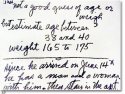 not a good guess of age or
weigh
but estimate age between
38 and 40
weight 165 to 175
Since he arrived on June 14th
he had a man and a woman
with him. They stay in the apt